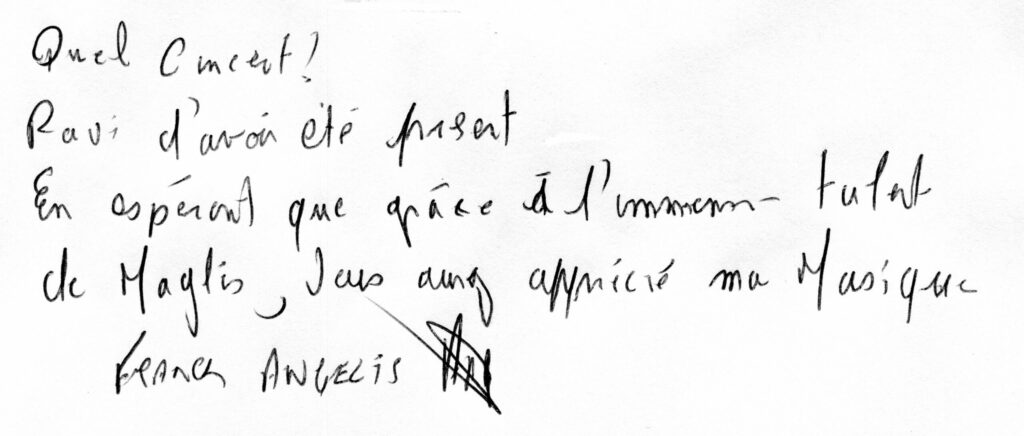 Quel Concert!
Ravi d'avoir été présent
En espérant que grâce à l'immense talent
de Maglis, Vous aurez apprécié ma Musique
Franck ANGELIS